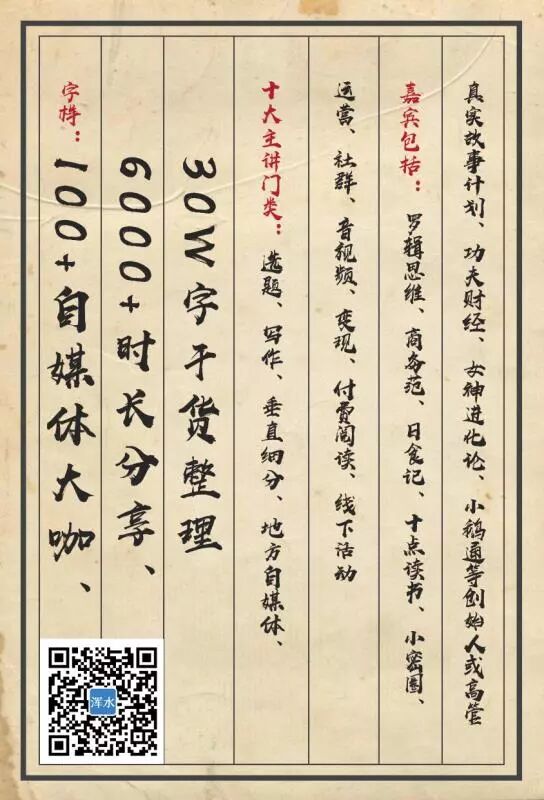 字持：100+自媒体大咖、
6000+时长分享、
30W字干货整理
十大主讲门类：选题、写作、垂直细分、地方自媒体、
运营、社群、音视频、变现、付费阅读、线下活动
嘉宾包括：罗辑思维、商务范、日食记、十点读书、小密圈、
真实故事计划、功夫财经、女神进化论、小鹅通等创始人或高管
浑水